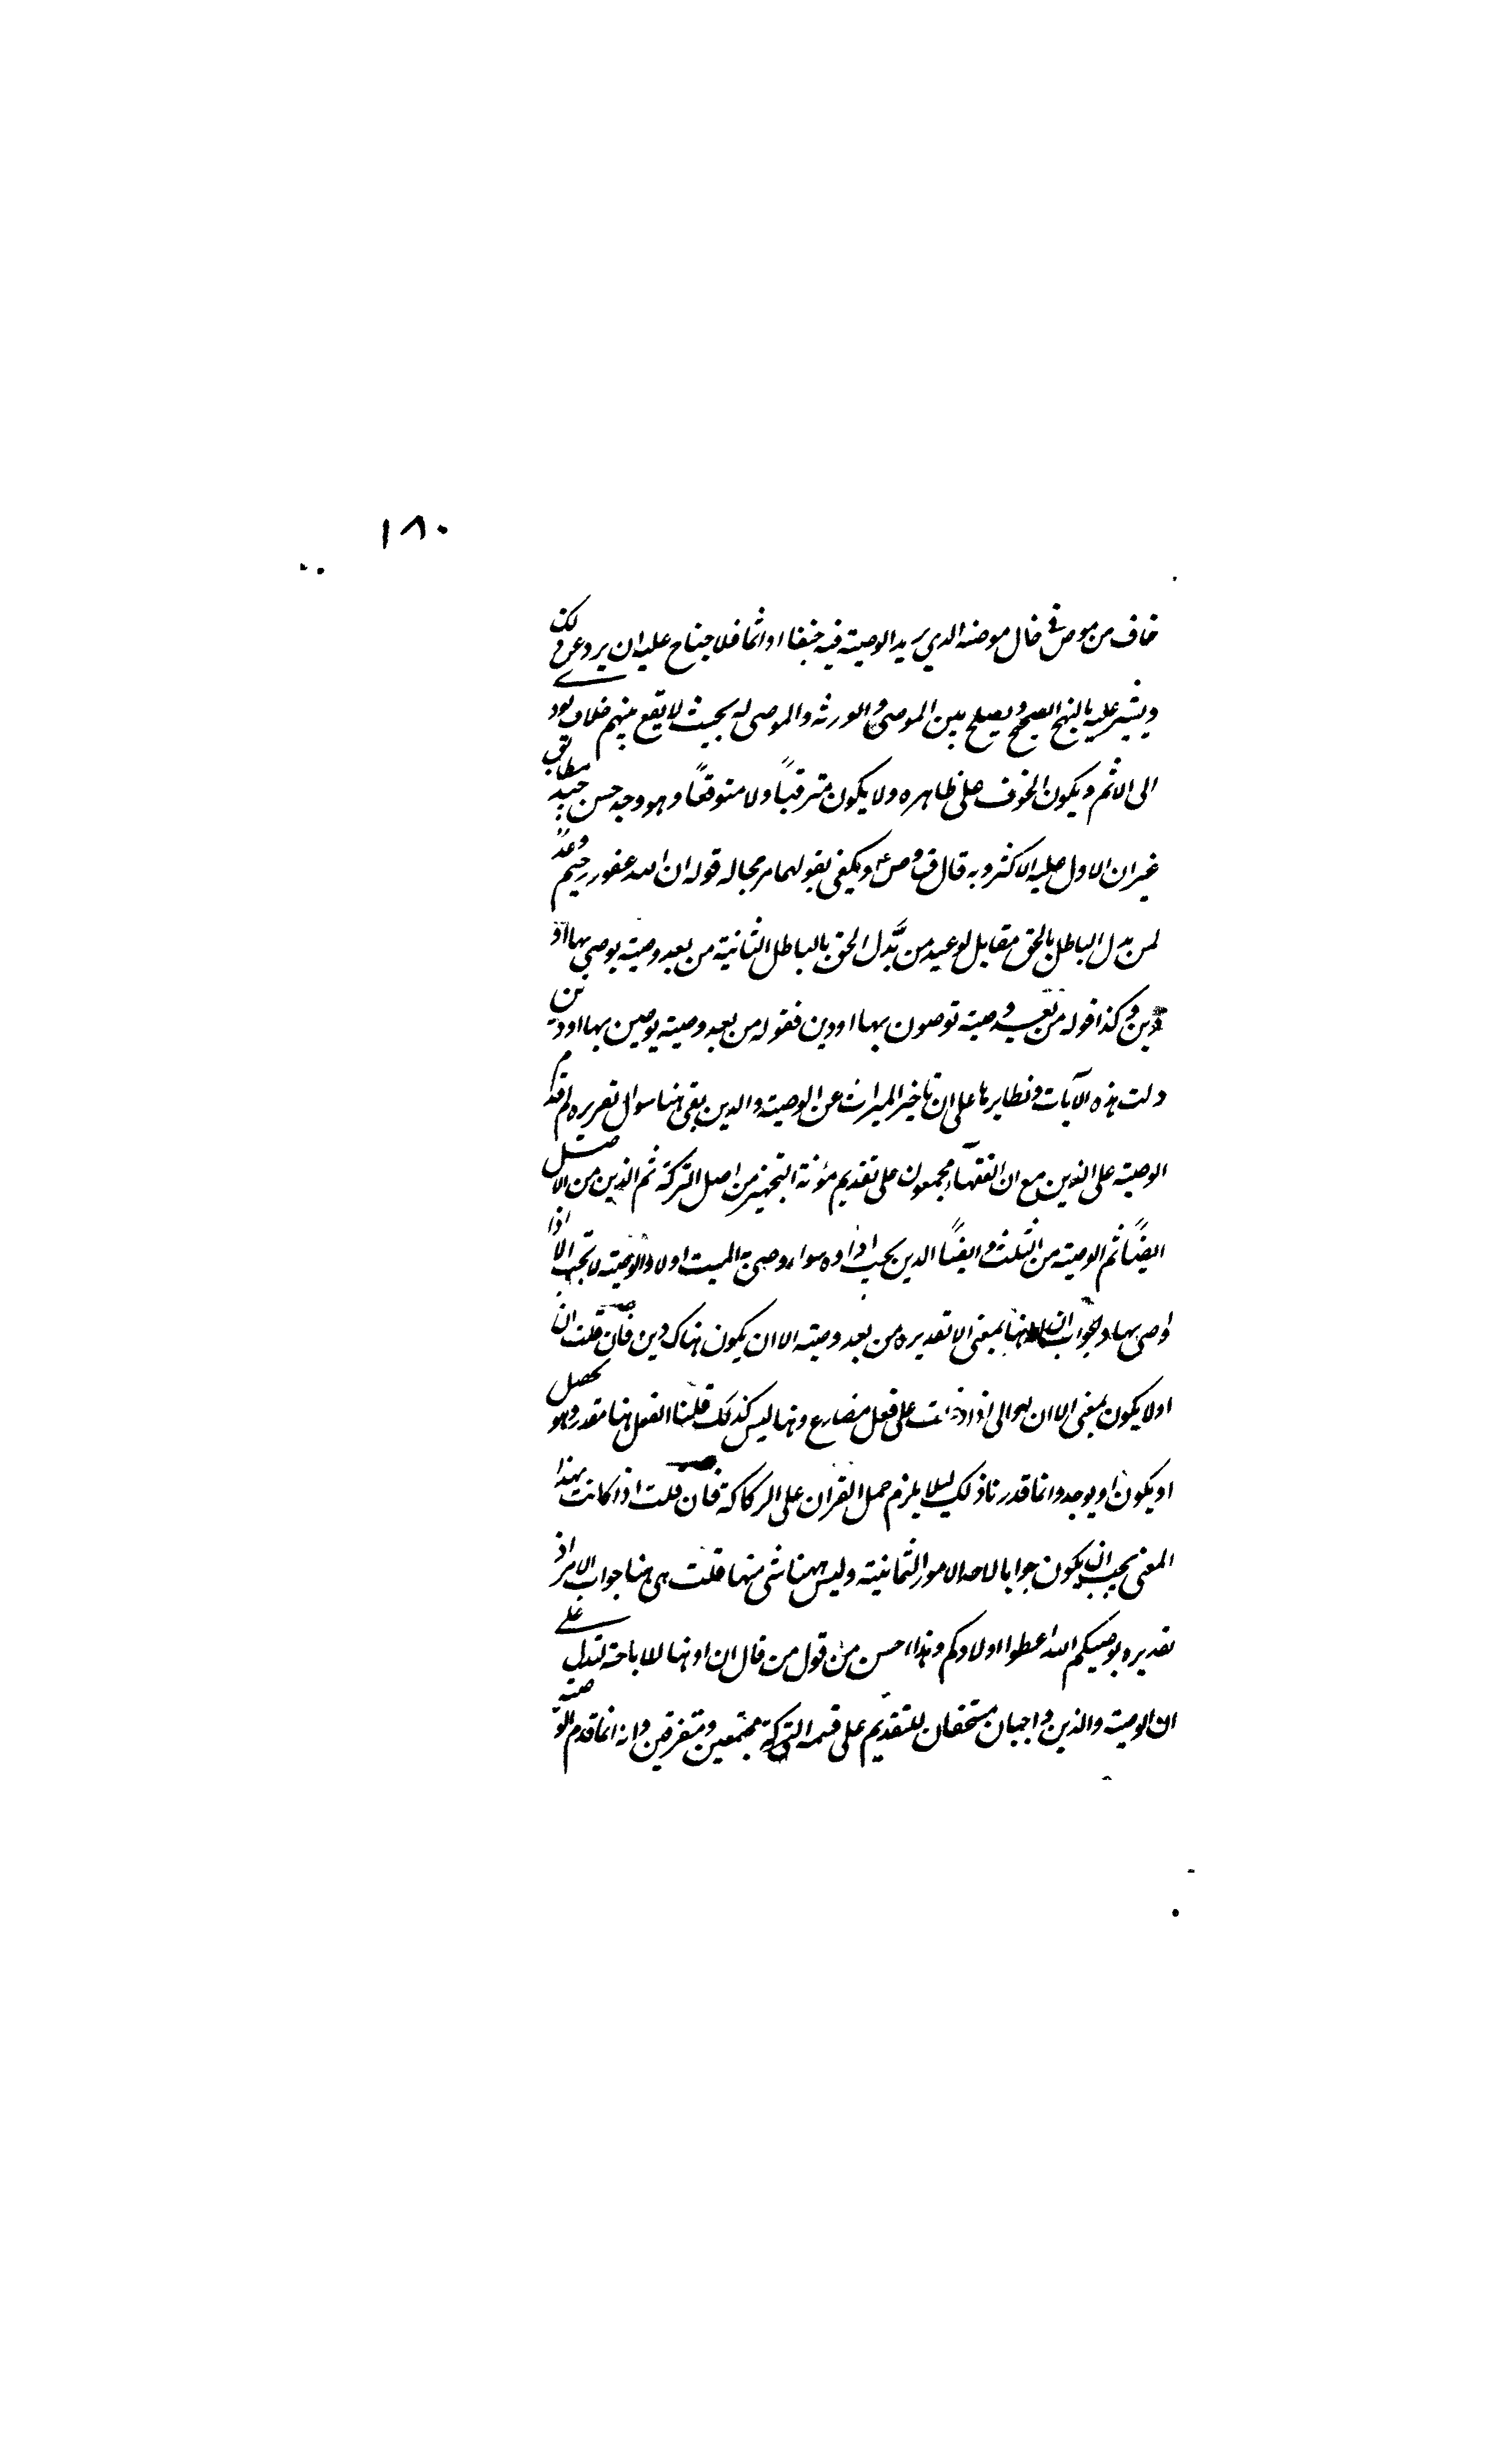 ١٨٠
خاف من موص في حال موضه الذي يريد الوصية فيه جنفا او اثما فلا جناح عليه ان يرده عن ذلك
ويشير عليه بالنهج الصحيح ويصلح بين الموصي والورثة والموصى له بحيث لا يقع بينهم خلاف يود
الى الاثم ويكون الخوف على ظاهره ولا يكون مترقبًا ولا متوقعًا وهو وجه حسن جيد مطابق
غير ان الاول عليه الاكثر وبه قال ق وص ع ويكفي بقولهما مرجحا له قوله ان الله غفور رحيم وعدٌ
لمن بدل الباطل بالحق مقابل لوعيد من بدّل الحق بالباطل الثانية من بعد وصية يوصي بها او
دين وكذا قوله من بعد وصية توصون بها او دين فقوله من بعد وصية يوصين بها او دين
دلت هذه الآيات ونظايرها على ان تاخير الميراث عن الوصية والدين بقي هنا سوال تقريره لم قدم
الوصية على الدين مع ان الفقهاء مجمعون على تقديم مؤنة التجهيز من اصل التركة ثم الدين من الاصل
ايضًا ثم الوصية من الثلث وايضًا الدين يجب اداوه سواء وصى به الميت او لا والوصية لا تجب الا اذا
اوصى بها والجواب ان او هنا بمعنى الا تقديره من بعد وصية الا ان يكون هناك دين فان قلت ان
او لا يكون بمعنى الا ان او الى اذا دخلت على فعل مضارع وهنا ليس كذلك قلنا الفعل هنا مقدر وهو يحصل
او يكون او يوجد وانما قدرنا ذلك ليلا يلزم حمل القران على الركاكة فان قلت اذا كانت بهذا
المعنى يجب ان يكون جوابا لاحد الامور الثمانية وليس هنا شي منها قلت هي هنا جواب الامر اذ
تقديره يوصيكم الله اعطوا اولادكم وهذا احسن من قول من قال ان او هنا للاباحة لتدل على
ان الوصية والدين واجبان مستحقان للتقديم على قسمة التركة مجتمعين ومتفرقين وانه انما قدم الوصية